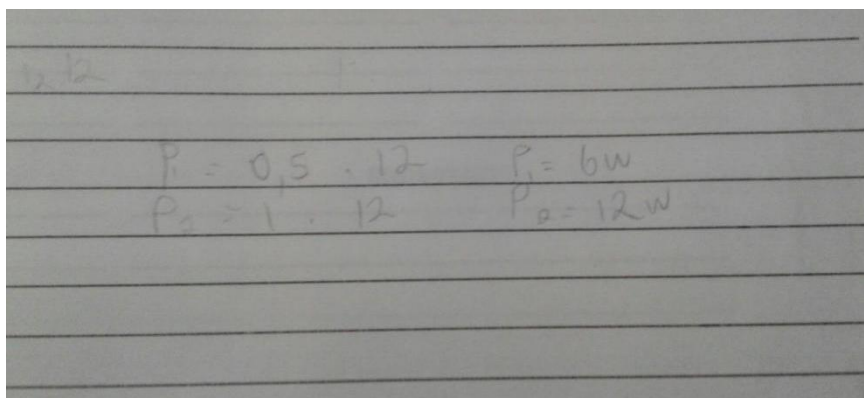 12 12
P₁ = 0,5 . 12 P₁ = 6w
P₂ = 1 . 12 P₂ = 12w